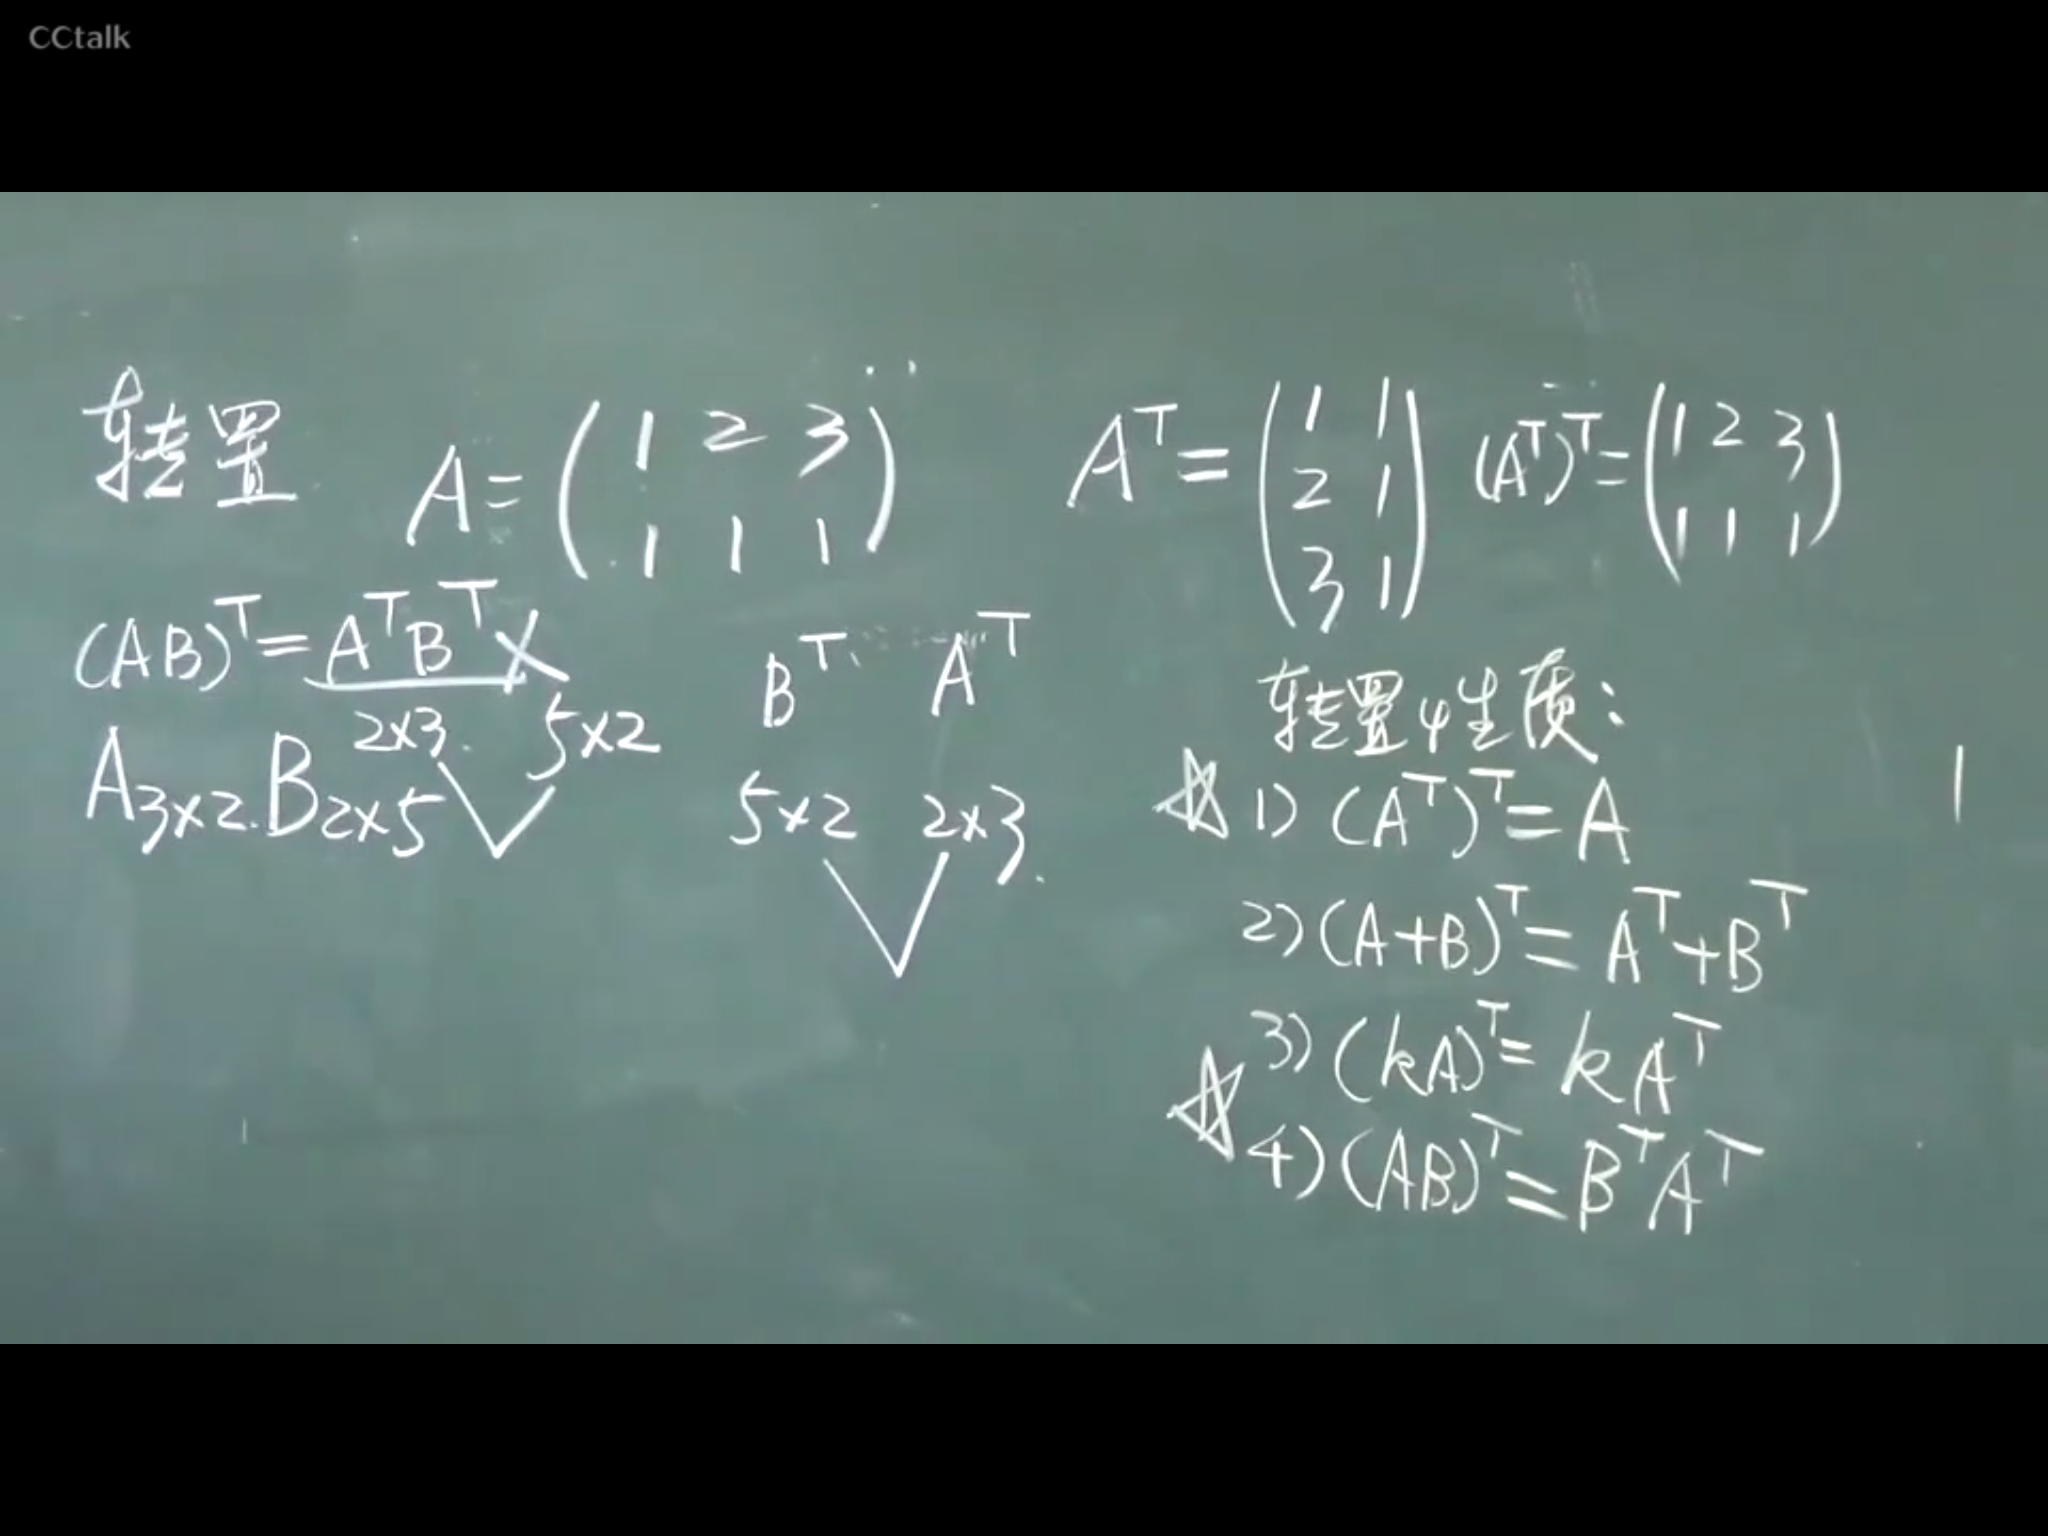 CCtalk
转置 A = ( 1 2 3
1 1 1 )
A^T = ( 1 1
2 1
3 1 )
(A^T)^T = ( 1 2 3
1 1 1 )
(AB)^T = A^T B^T ×
2×3. 5×2
A3×2. B2×5
B^T A^T
5×2 2×3.
转置性质:
☆ 1) (A^T)^T = A
2) (A+B)^T = A^T + B^T
3) (kA)^T = kA^T
☆ 4) (AB)^T = B^T A^T